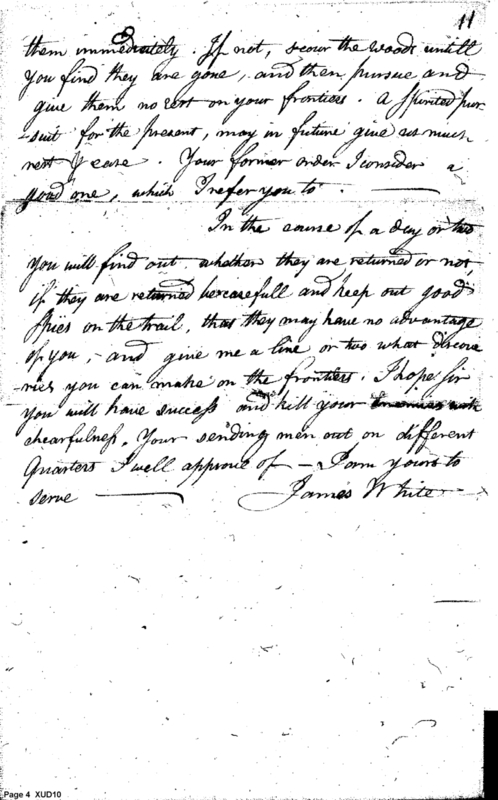 11
them immediately. If not, scour the woods untill
you find they are gone, and then pursue and
give them no rest on your frontiers. A spirited pur-
suit for the present, may in future give us much
rest & ease. Your former order I consider a
good one, which I refer you to.
In the course of a day or two
you will find out whether they are returned or not,
if they are returned be carefull and keep out good
spies on the trail, that they may have no advantage
of you, and give me a line or two what discove
ries you can make on the frontiers. I hope Sir
you will have success and kill your enemies with
chearfulness. Your sending men out on different
Quarters I well approve of – I am yours to
serve James White
Page 4 XUD10